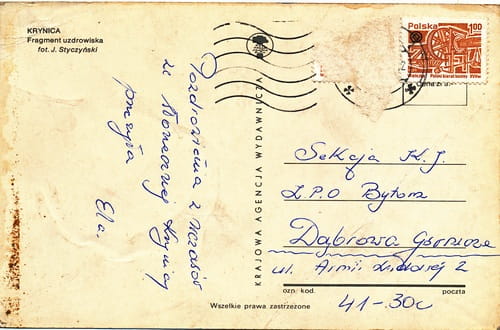 KRYNICA
Fragment uzdrowiska
fot. J. Styczyński
Pozdrowienia z wczasów
ze słonecznej Krynicy
przesyła
Ela
KRAJOWA AGENCJA WYDAWNICZA
Polska 1,00
Sekcja K.J.
Z.P.O Bytom
Dąbrowa Górnicza
ul. Armii Ludowej 2
ozn. kod. poczta
41-300
Wszelkie prawa zastrzeżone